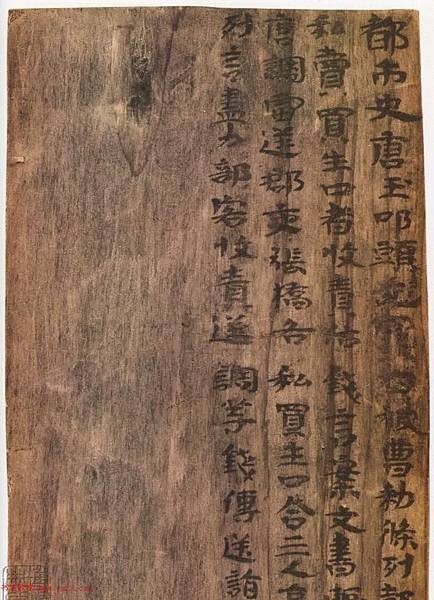 都市史唐玉叩頭死罪白被曹勑條列起
私賣買生口者收責估錢言案文書輒
唐調雷逆郡吏張橋各私買生口合三人直
列言盡力部客收責逆調等錢傳送詣